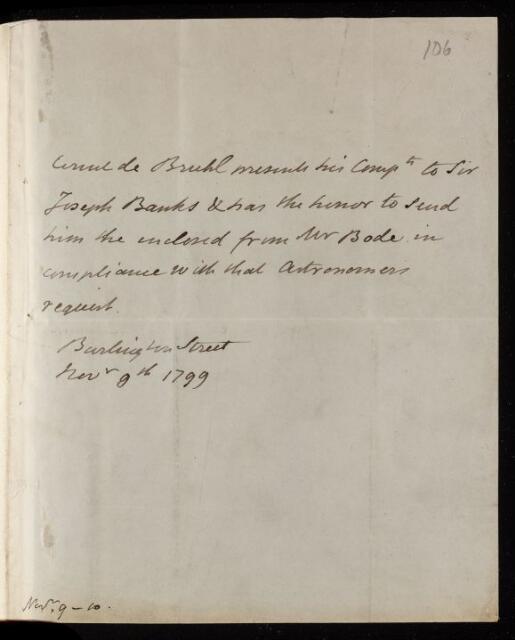 106
Count de Bruhl presents his Comp^ts to Sir
Joseph Banks & has the honor to send
him the enclosed from Mr Bode in
compliance with that Astronomers
request.
Burlington Street
Nov^r 9^th 1799
Nov^r. 9 – 10.